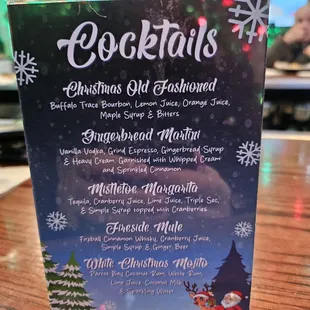 Cocktails
Christmas Old Fashioned
Buffalo Trace Bourbon, Lemon Juice, Orange Juice,
Maple Syrup & Bitters
Gingerbread Martini
Vanilla Vodka, Grind Espresso, Gingerbread Syrup
& Heavy Cream. Garnished with Whipped Cream
and Sprinkled Cinnamon
Mistletoe Margarita
Tequila, Cranberry Juice, Lime Juice, Triple Sec,
& Simple Syrup topped with Cranberries
Fireside Mule
Fireball Cinnamon Whisky, Cranberry Juice,
Simple Syrup & Ginger Beer
White Christmas Mojito
Parrot Bay Coconut Rum, White Rum,
Lime Juice, Coconut Milk
& Sparkling Water